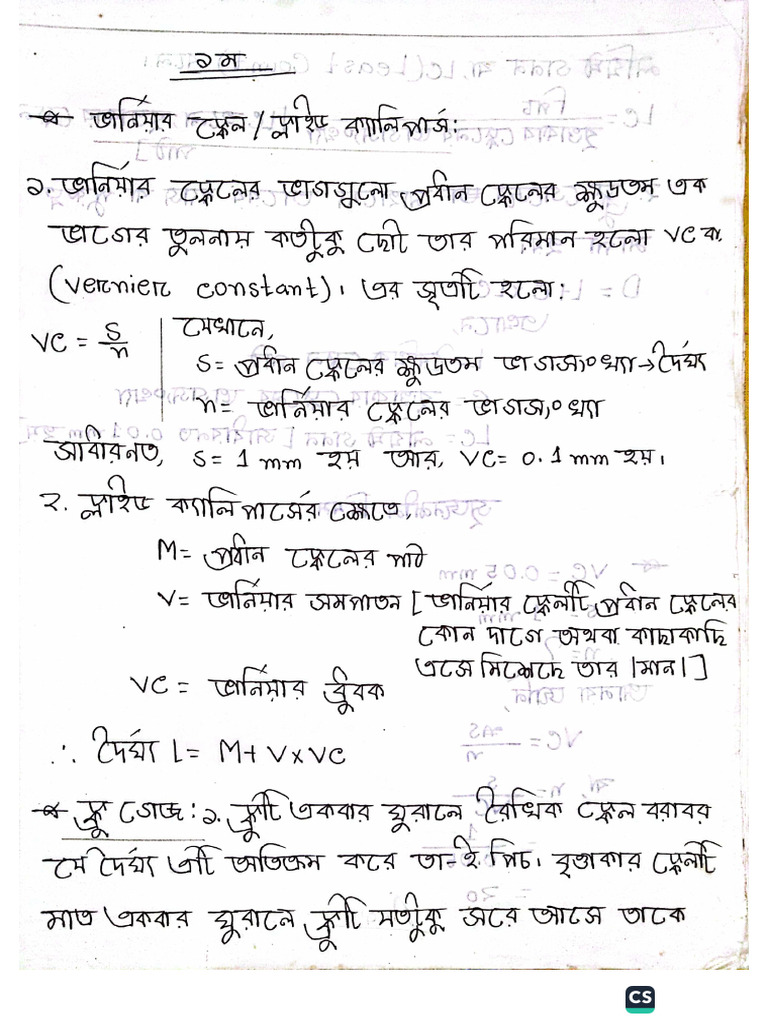 ১ম
* ভার্নিয়ার স্কেল / স্লাইড ক্যালিপার্স:
১. ভার্নিয়ার স্কেলের ভাগগুলো প্রধান স্কেলের ক্ষুদ্রতম এক
ভাগের তুলনায় কতটুকু ছোট তার পরিমান হলো VC বা
(vernier constant)। এর সূত্রটি হলো:
VC = S/n | যেখানে,
S = প্রধান স্কেলের ক্ষুদ্রতম ভাগসংখ্যা → দৈর্ঘ্য
n = ভার্নিয়ার স্কেলের ভাগসংখ্যা
সাধারনত, S = 1 mm হয় আর, VC = 0.1 mm হয়।
২. স্লাইড ক্যালিপার্সের ক্ষেত্রে,
M = প্রধান স্কেলের পাঠ
V = ভার্নিয়ার সমপাতন [ভার্নিয়ার স্কেলটি প্রধান স্কেলের
কোন দাগে অথবা কাছাকাছি
এসে মিশেছে তার |মান|]
VC = ভার্নিয়ার ধ্রুবক
∴ দৈর্ঘ্য L = M + V × VC
* স্ক্রু গেজ: ১. স্ক্রুটি একবার ঘুরালে রৈখিক স্কেল বরাবর
যে দৈর্ঘ্য এটি অতিক্রম করে তা-ই পিচ। বৃত্তাকার স্কেলটি
মাত্র একবার ঘুরালে স্ক্রুটি যতটুকু সরে আসে তাকে
CS